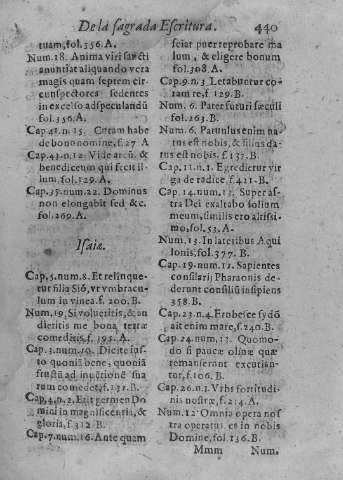 De la sagrada Escritura. 440
tuam, fol. 356. A.
Num. 18. Anima viri sancti
anuntiat aliquando vera
magis quam septem cir
cunspectores sedentes
in excelso adspeculandũ
fol. 356. A.
Cap. 41. n. 15. Curam habe
de bono nomine, f. 27 A
Cap. 43. n. 12. Vide arcũ, &
benedic eum qui fecit il
lum, fol. 329. A.
Cap. 35. num. 22. Dominus
non elongabit sed & c.
fol. 269. A.
Isaiæ.
Cap. 5. num. 8. Et relinque-
tur filia Siõ, vt vmbracu
lum in vinea. f. 200. B.
Num. 19, Si volueritis, & au
dieritis me bona terræ
comeditis, f. 395. A.
Cap. 3. num. 10. Dicite jus-
to quoniã bene, quoniã
fructũ ad inuentionũ sua
rum comedet, f. 131. B.
Cap, 4. n. 2. Erit germen Do
mini in magnificentia, &
gloria, f. 312 B.
Cap. 7. num. 16. Ante quam
sciat puer reprobare ma
lum, & eligere bonum
fol. 308. A.
Cap. 9. n. 3 Letabuntur co
ram te, f. 129. B.
Num. 6. Pater futuri sæculi
fol. 263. B.
Num. 6. Paruulus enim na-
tus est nobis, & filius da-
tus est nobis. f. 137. B.
Cap. 11. n. 1. Egredietur vir
ga de radice, f. 421. B.
Cap. 14. num. 12. Super as-
tra Dei exaltabo solium
meum, similis ero altissi-
mo, fol. 53, A.
Num. 13. In lateribus Aqui
lonis, fol. 377. B.
Cap. 19. num. 11. Sapientes
consiliarij Pharaonis de-
derunt consiliũ insipiens
358. B.
Cap. 23. n. 4. Erubesce sydõ
ait enim mare, f. 240. B.
Cap. 24. num. 13. Quomo-
do si paucæ oliuæ quæ
remanserunt excutian-
tur, f. 106. B.
Cap. 26. n. 1. Vrbs fortitudi
nis nostræ, f. 214. A.
Num. 12 Omnia opera nos
tra operatus es in nobis
Domine, fol. 136. B.
Mmm Num.